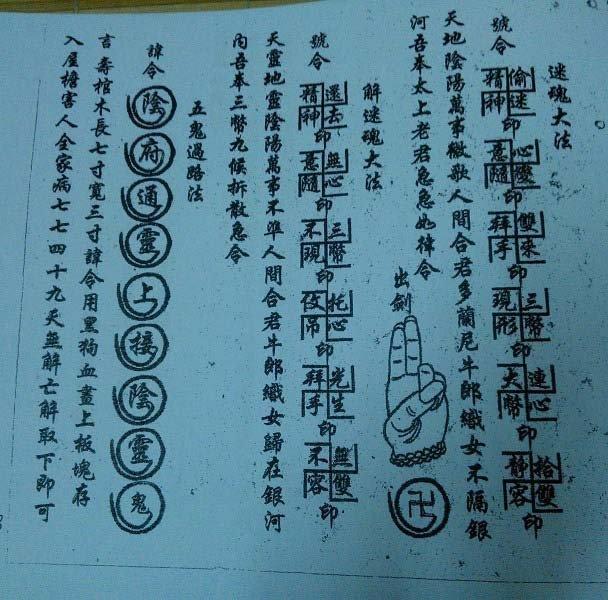 迷魂大法
號令 偷迷精神印 心靈意隨印 雙來拜手印 三幣現形印 連心大幣印 拾雙靜容印
天地陰陽萬事繳歌人間合君多蘭尼牛郎織女不隔銀
河吾奉太上老君急急如律令
出劍
卍
解迷魂大法
號令 還去精神印 無心意隨印 三幣不現印 托心吊印 光生拜手印 無雙不容印
天靈地靈陰陽萬事不準人間合君牛郎織女歸在銀河
內吾奉三幣九候拆散急令
五鬼過路法
諱令 陰府通靈上接陰靈鬼
言壽棺木長七寸寬三寸諱令用黑狗血畫上板塊存
入屋檐害人全家病七七四十九天無解亡解取下即可